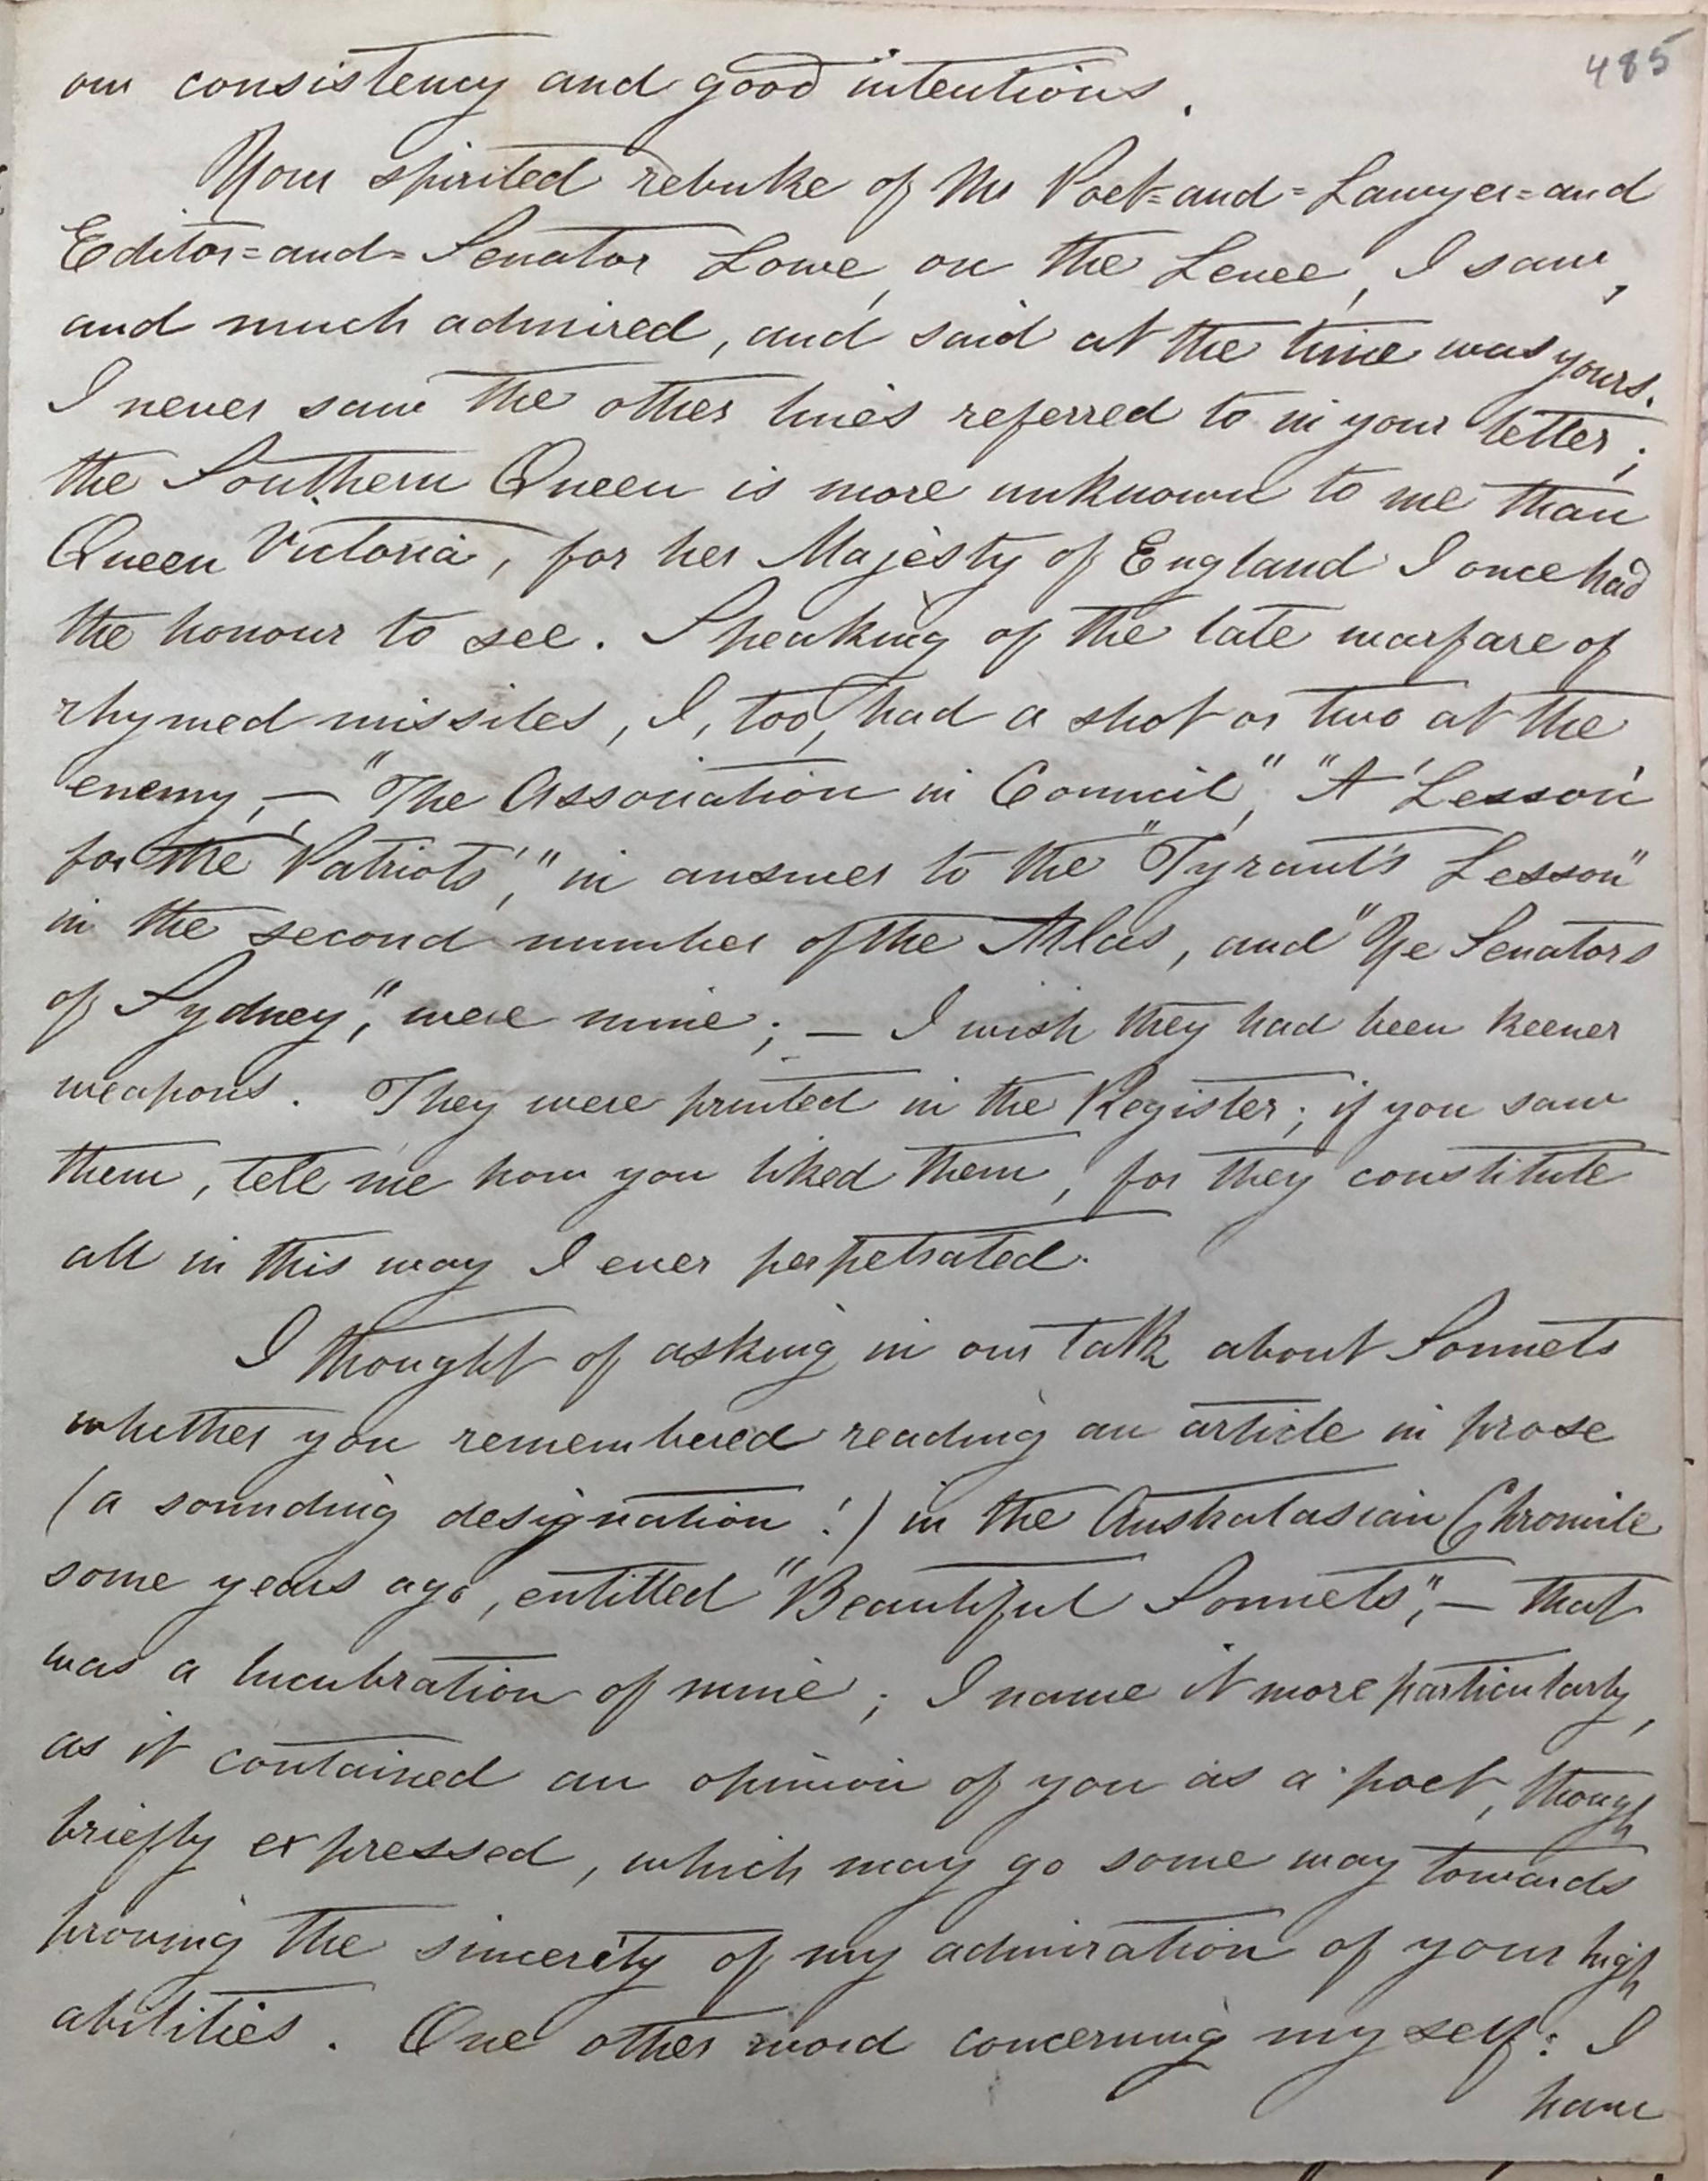 485
our consistency and good intentions.
Your spirited rebuke of Mr Poet=and=Lawyer=and
Editor=and=Senator Lowe, on the Levee, I saw,
and much admired, and said at the time was yours.
I never saw the other lines referred to in your letter;
the Southern Queen is more unknown to me than
Queen Victoria, for her Majesty of England I once had
the honour to see. Speaking of the late warfare of
rhymed missiles, I, too, had a shot or two at the
enemy,— "The Association in Council," "A 'Lesson
for the Patriots'," in answer to the "Tyrant's Lesson"
in the second number of the Atlas, and "Ye Senators
of Sydney", were mine; — I wish they had been keener
weapons. They were printed in the Register; if you saw
them, tell me how you liked them, for they constitute
all in this way I ever perpetrated.
I thought of asking in our talk about Sonnets
whether you remembered reading an article in prose
(a sounding designation!) in the Australasian Chronicle
some years ago, entitled "Beautiful Sonnets",— that
was a lucubration of mine; I name it more particularly,
as it contained an opinion of you as a poet, though
briefly expressed, which may go some way towards
proving the sincerity of my admiration of your high
abilities. One other word concerning myself: I
have